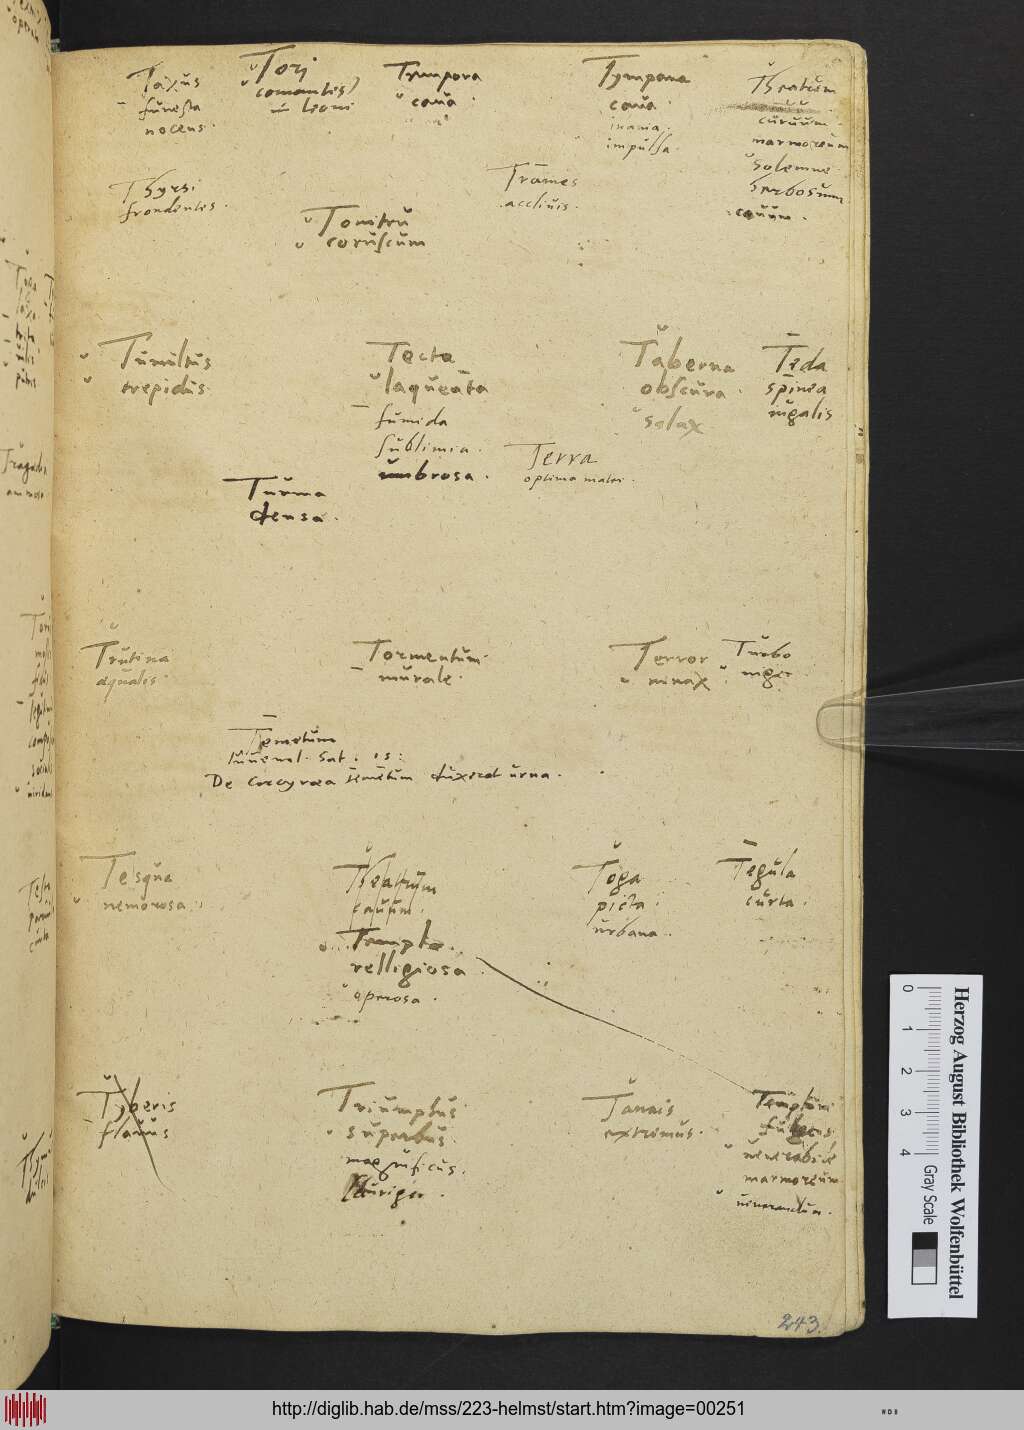 Taxus
funesta
nocens.
Tori
comantes
leoni
Tempora
caua.
Tympana
caua.
inania.
impulsa.
Theatrum
curuum.
marmoreum
Solemne
herbosum
cauum.
Thyrsi
frondentes.
Trames
accliuis.
Tonitru
coruscum
Tumultus
trepidus
Tecta
laqueata
fumida
sublimia.
umbrosa.
Taberna
obscura.
salax
Teda
spinea
iugalis
Terra
optima matri.
Turma
densa.
Trutina
æqualis.
Tormentum
murale.
Terror
minax.
Turbo
niger
Temetum
Iuuenal. Sat. 15:
De Corcyræa temetum duxerat urna.
Tesqua
nemorosa.
Theatrum
cauum.
Templa
relligiosa
operosa.
Toga
picta.
urbana.
Tegula
curta.
Tyberis
flauus
Triumphus
superbus.
magnificus.
Tanais
extremus.
Templum
uenerabile
marmoreum
uenerandum.
243.
0 1 2 3 4
Gray Scale
Herzog August Bibliothek Wolfenbüttel
http://diglib.hab.de/mss/223-helmst/start.htm?image=00251